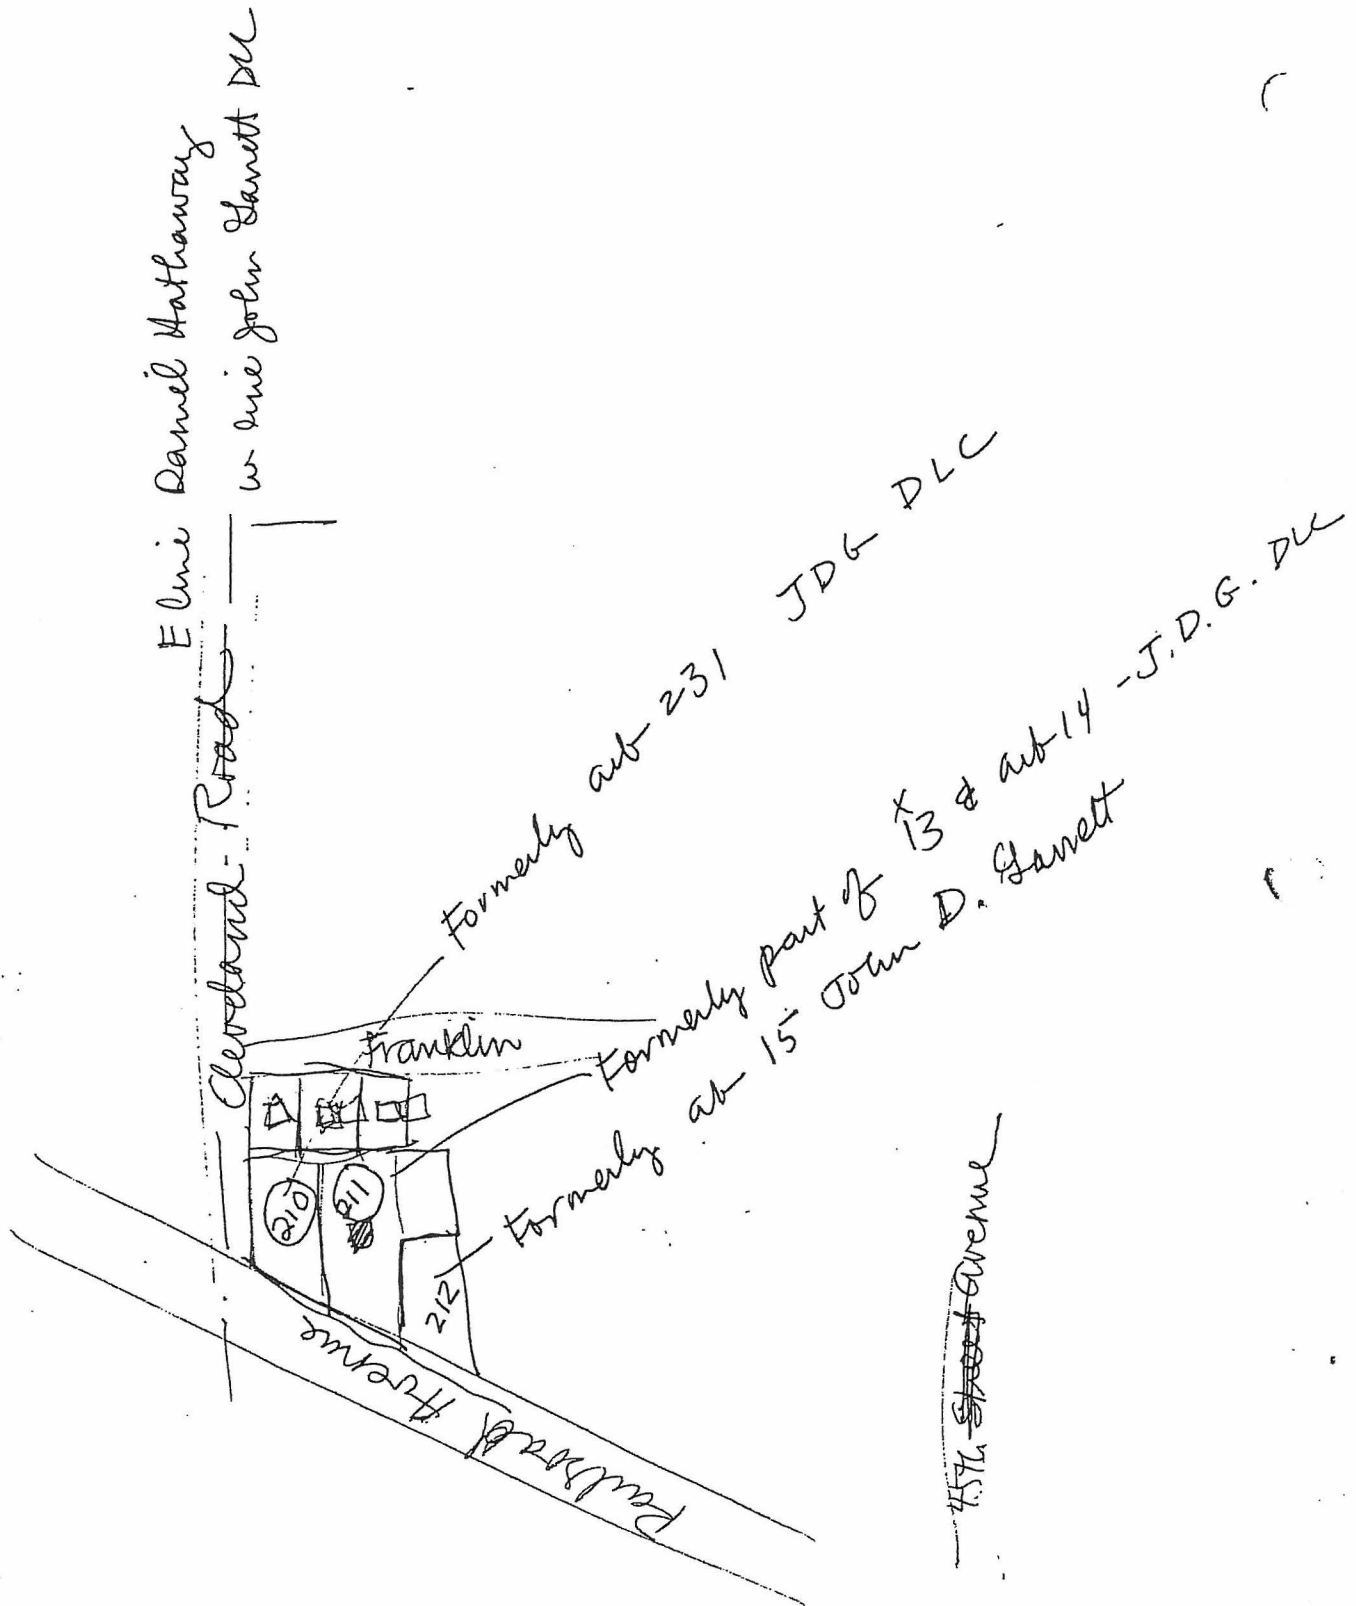 E line Daniel Hathaway
w line John Garrett DLC
Cleveland Road
Formerly arb 231 JDG DLC
Franklin
Formerly part of x13 & arb 14 - J.D.G. DLC
Formerly arb 15 John D. Garrett
210
211
212
Railroad Avenue
45th Street Avenue